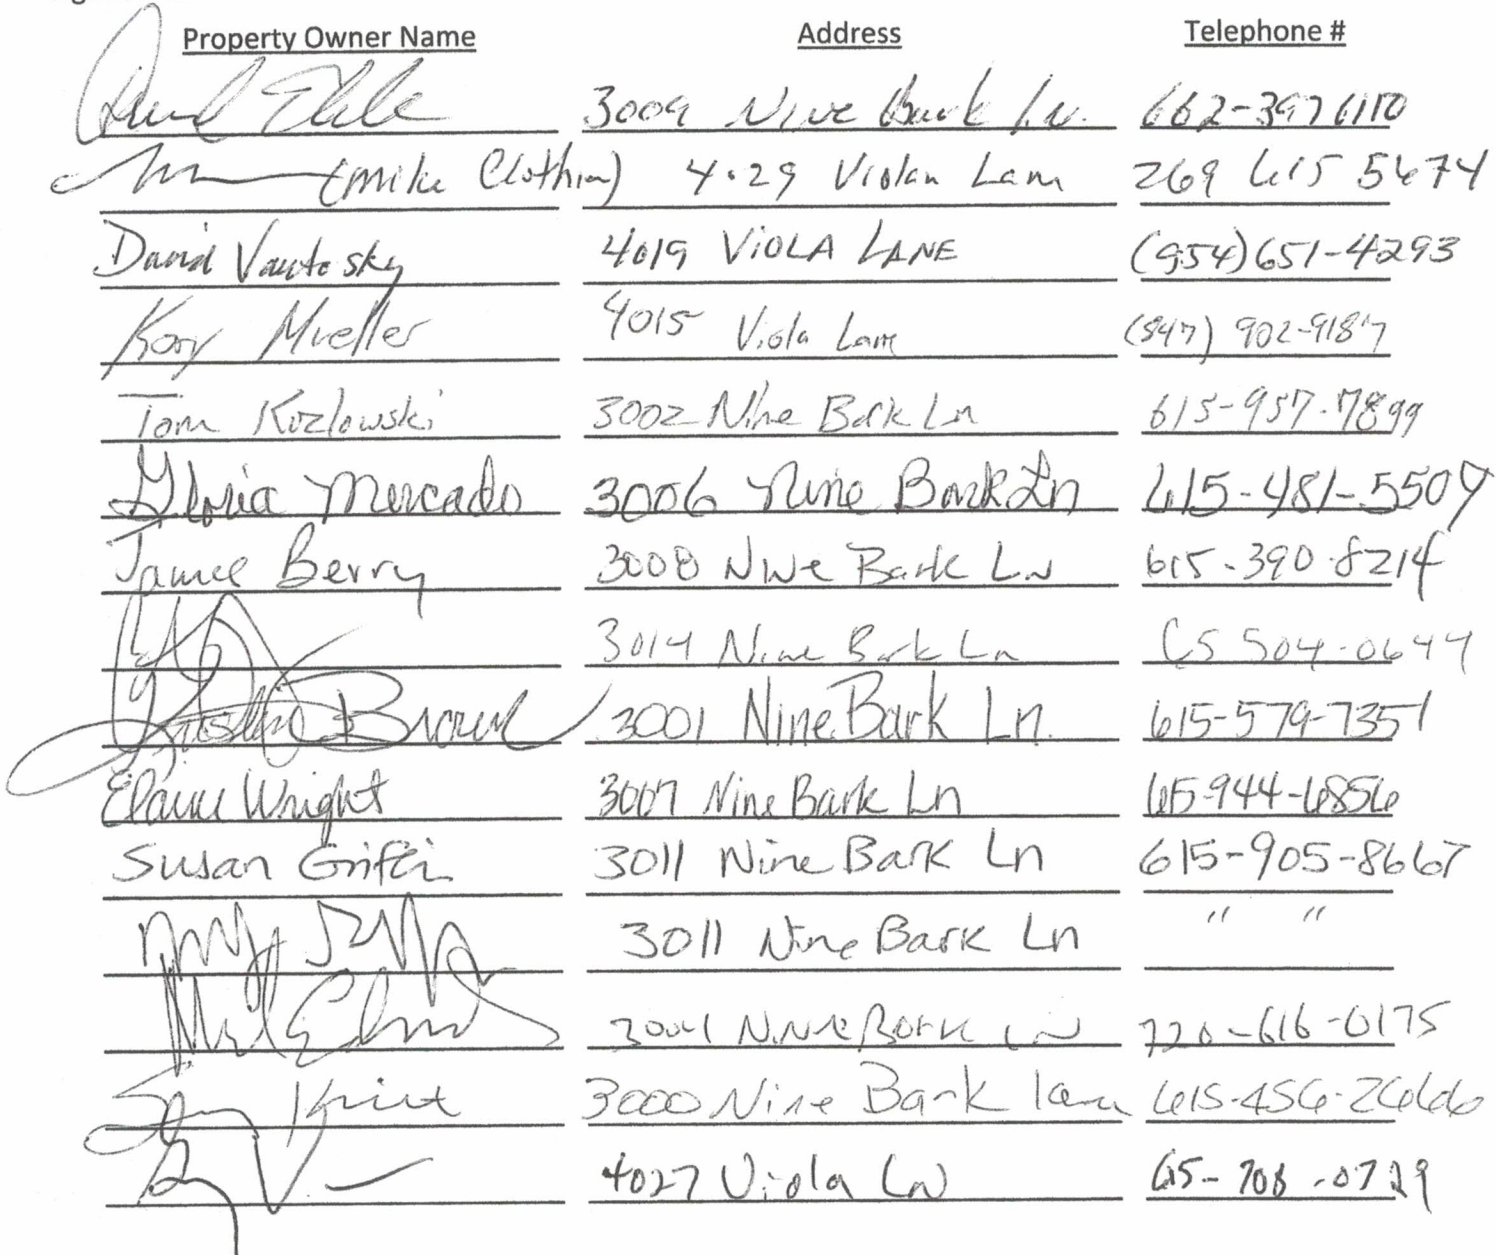 Property Owner Name Address Telephone #
3009 Nine Bark Ln. 662-397 6110
(Mike Clothier) 4029 Lane 269 615 5674
David Vautosky 4019 VIOLA LANE (954)651-4293
Kory Mueller 4015 Viola Lane (847) 902-9187
Tom Kozlowski 3002 Nine Bark Ln 615-957-7899
Gloria Mercado 3006 Nine Bark Ln 615-481-5509
Berry 3008 Nine Bark Ln 615-390-8214
3014 Nine Bark Ln 504-0644
Brown 3001 Nine Bark Ln. 615-579-7351
Elaine Wright 3007 Nine Bark Ln 615-944-6856
Susan Griffin 3011 Nine Bark Ln 615-905-8667
3011 Nine Bark Ln " "
Nine Bark Ln 720-616-0175
3000 Nine Bark lane 615-456-2666
4027 Viola Ln 615-708-0729